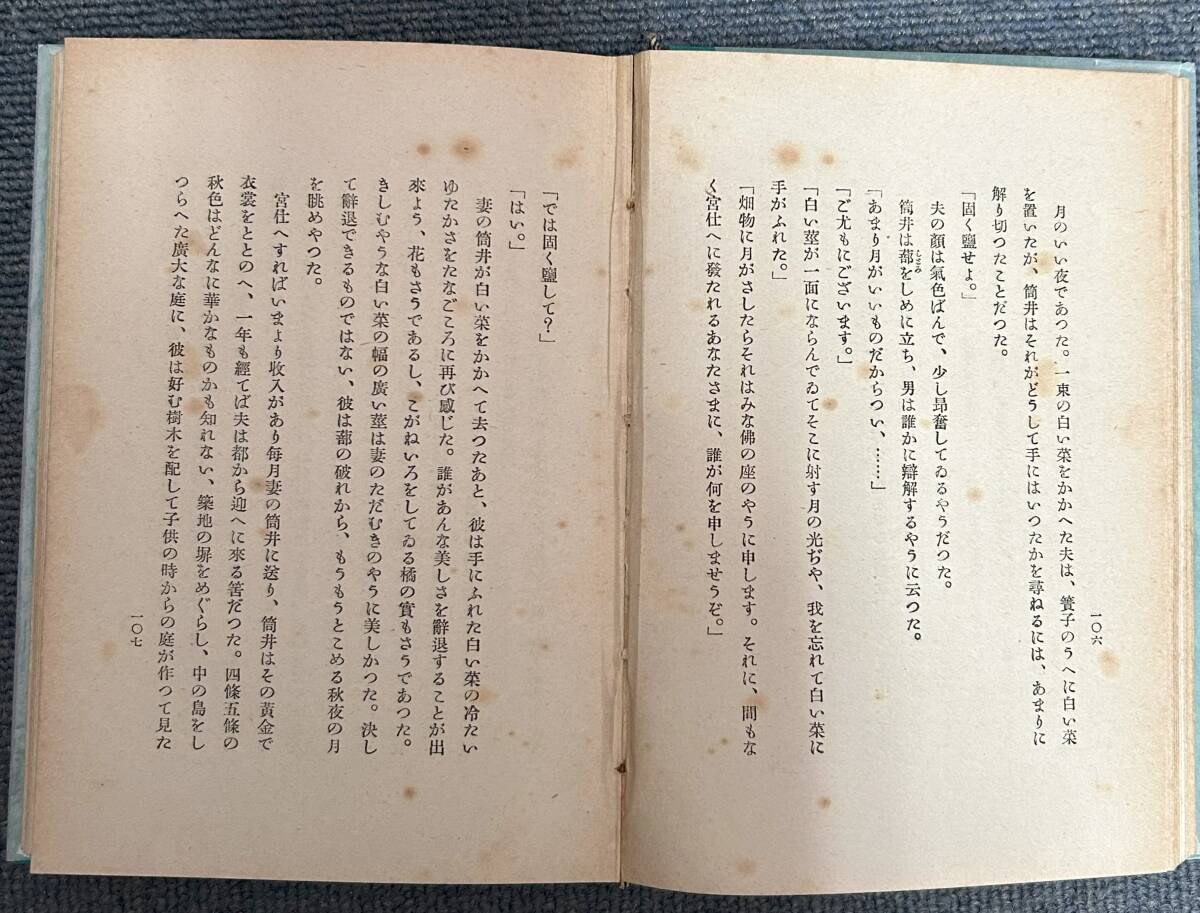 一〇六
月のいい夜であつた。一束の白い菜をかかへた夫は、簀子のうへに白い菜
を置いたが、筒井はそれがどうして手にはいつたかを尋ねるには、あまりに
解り切つたことだつた。
「固く鹽せよ。」
夫の顔は氣色ばんで、少し昻奮してゐるやうだつた。
筒井は蔀をしめに立ち、男は誰かに辯解するやうに云つた。
しとみ
「あまり月がいいものだからつい、……」
「ご尤もにございます。」
「白い莖が一面にならんでゐてそこに射す月の光ぢや、我を忘れて白い菜に
手がふれた。」
「畑物に月がさしたらそれはみな佛の座のやうに申します。それに、間もな
く宮仕へに發たれるあなたさまに、誰が何を申しませうぞ。」
「では固く鹽して？」
「はい。」
妻の筒井が白い菜をかかへて去つたあと、彼は手にふれた白い菜の冷たい
ゆたかさをたなごころに再び感じた。誰があんな美しさを辭退することが出
來よう、花もさうであるし、こがねいろをしてゐる橘の實もさうであつた。
きしむやうな白い菜の幅の廣い莖は妻のただむきのやうに美しかつた。決し
て辭退できるものではない、彼は蔀の破れから、もうもうとこめる秋夜の月
を眺めやつた。
宮仕へすればいまより收入があり每月妻の筒井に送り、筒井はその黃金で
衣裳をととのへ、一年も經てば夫は都から迎へに來る筈だつた。四條五條の
秋色はどんなに華かなものかも知れない、築地の塀をめぐらし、中の島をし
つらへた廣大な庭に、彼は好む樹木を配して子供の時からの庭が作つて見た
一〇七